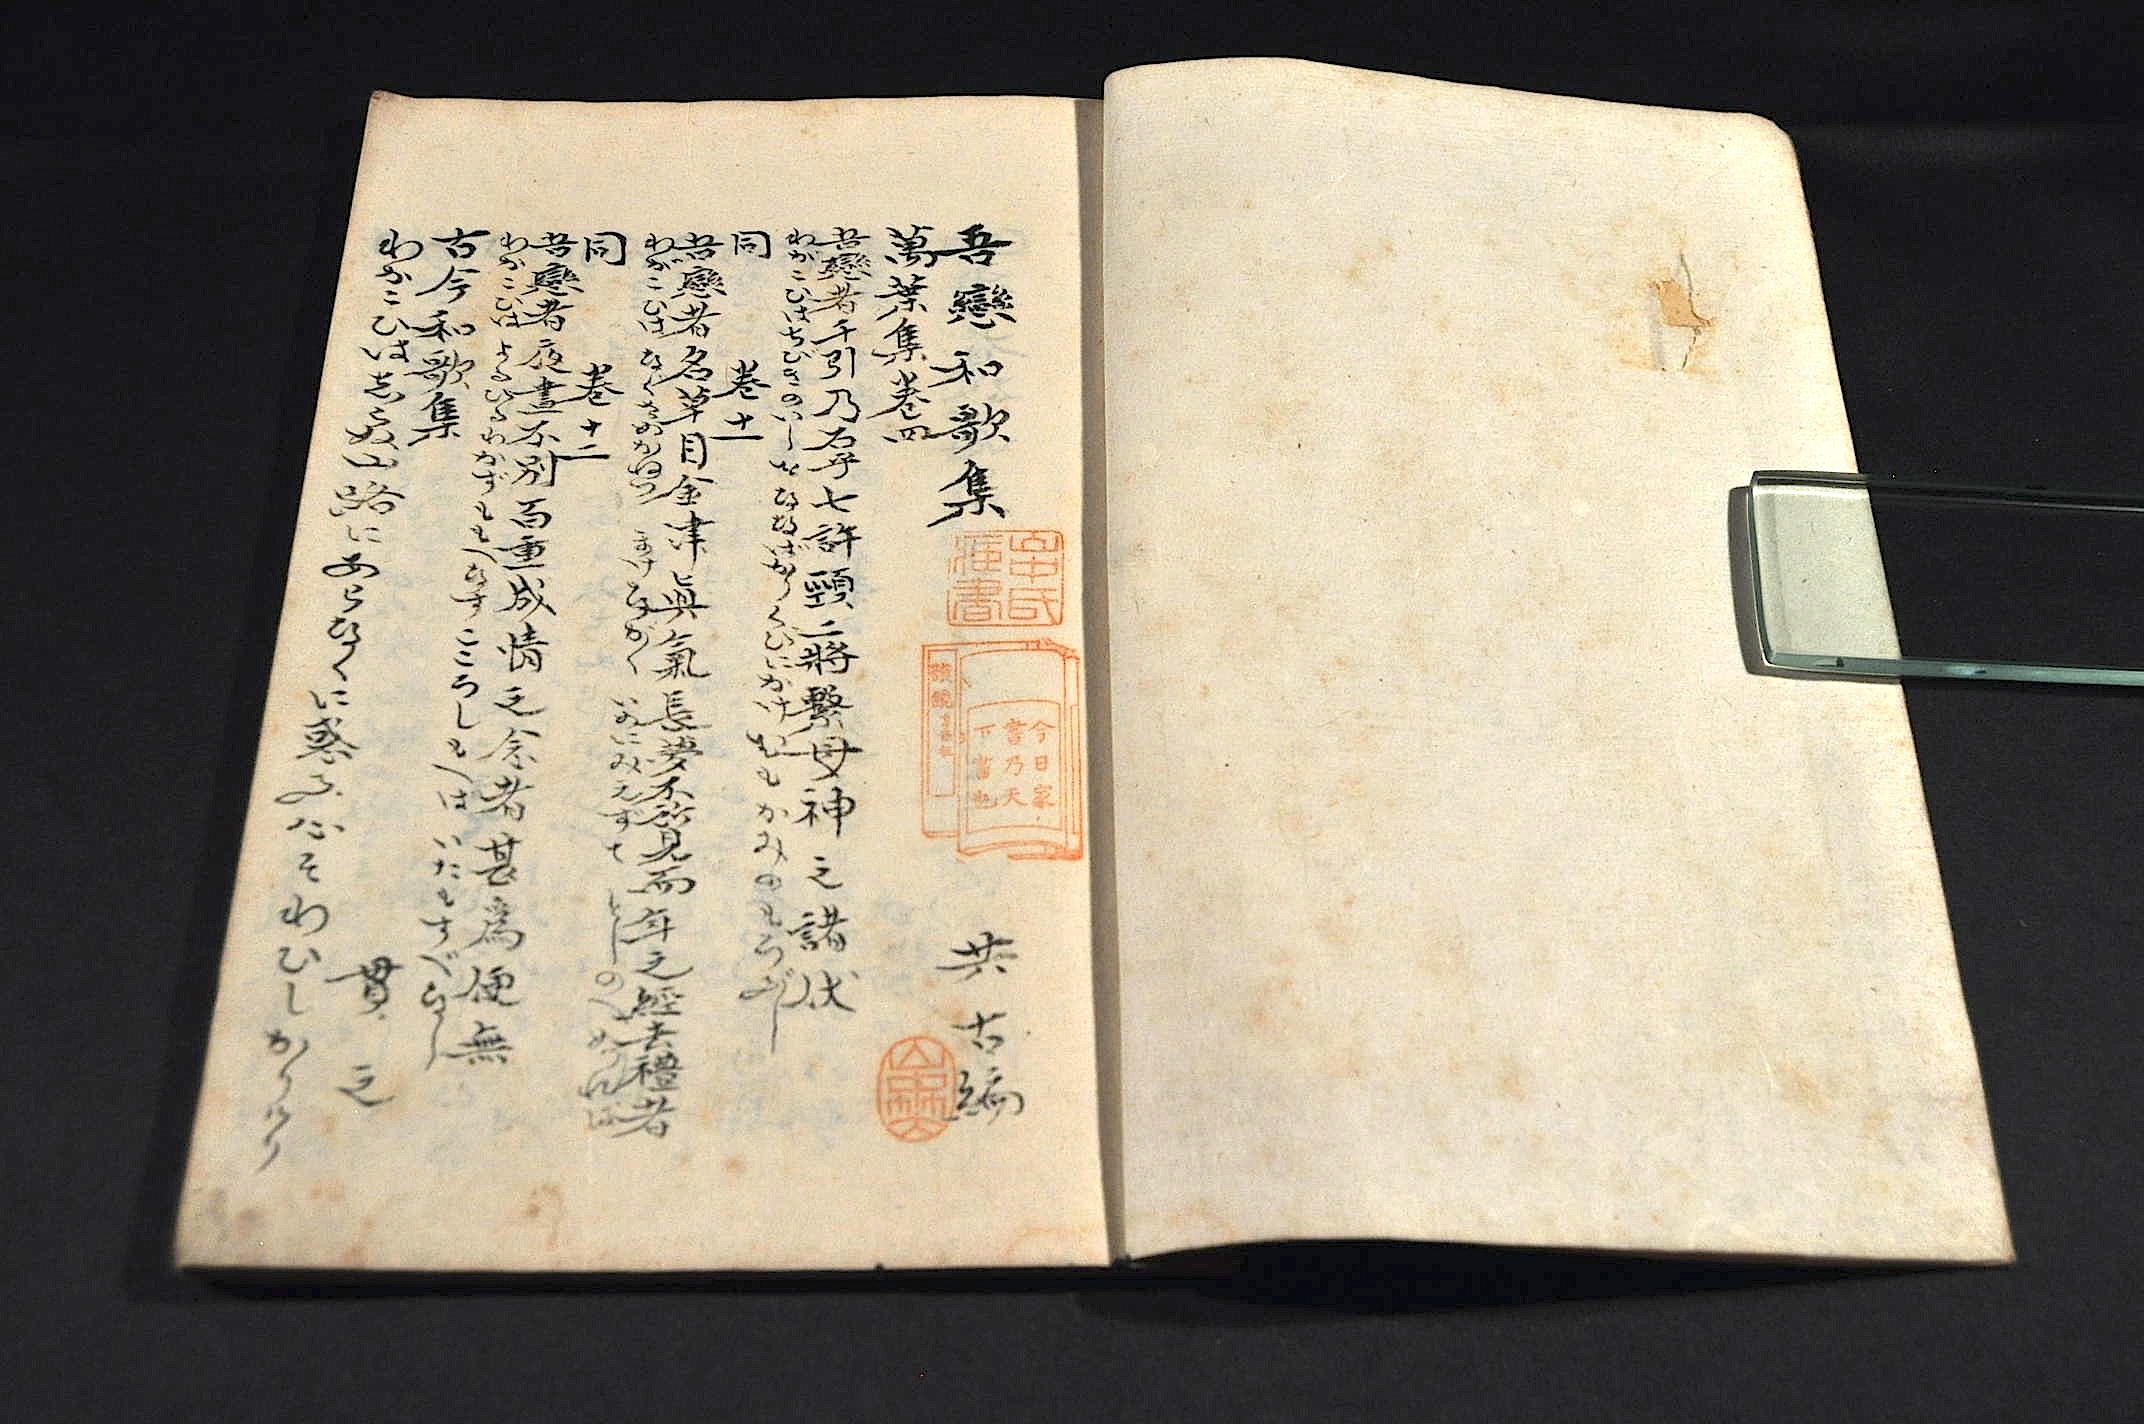 吾戀和歌集
共古編
萬葉集巻四
吾戀者千引乃石乎七許頸二將繫母神之諸伏
わがこひはちびきのいしをなゝばかりくびにかけむもかみのもろぶし
同 巻十一
吾戀者名草目金津眞氣長夢不所見而年之經去禮者
わがこひはなぐさめかねつまけながくいめにみえずてとしのへぬれば
同 巻十二
吾戀者夜晝不別百重成情之念者甚為便無
わがこひはよるひるわかずももへなすこころしもへばいたもすべなし
古今和歌集
貫之
わがこひは志らぬ山路にあらなくに惑ふ心そわひしかりける
山中氏蔵書
今日家書乃天下書也